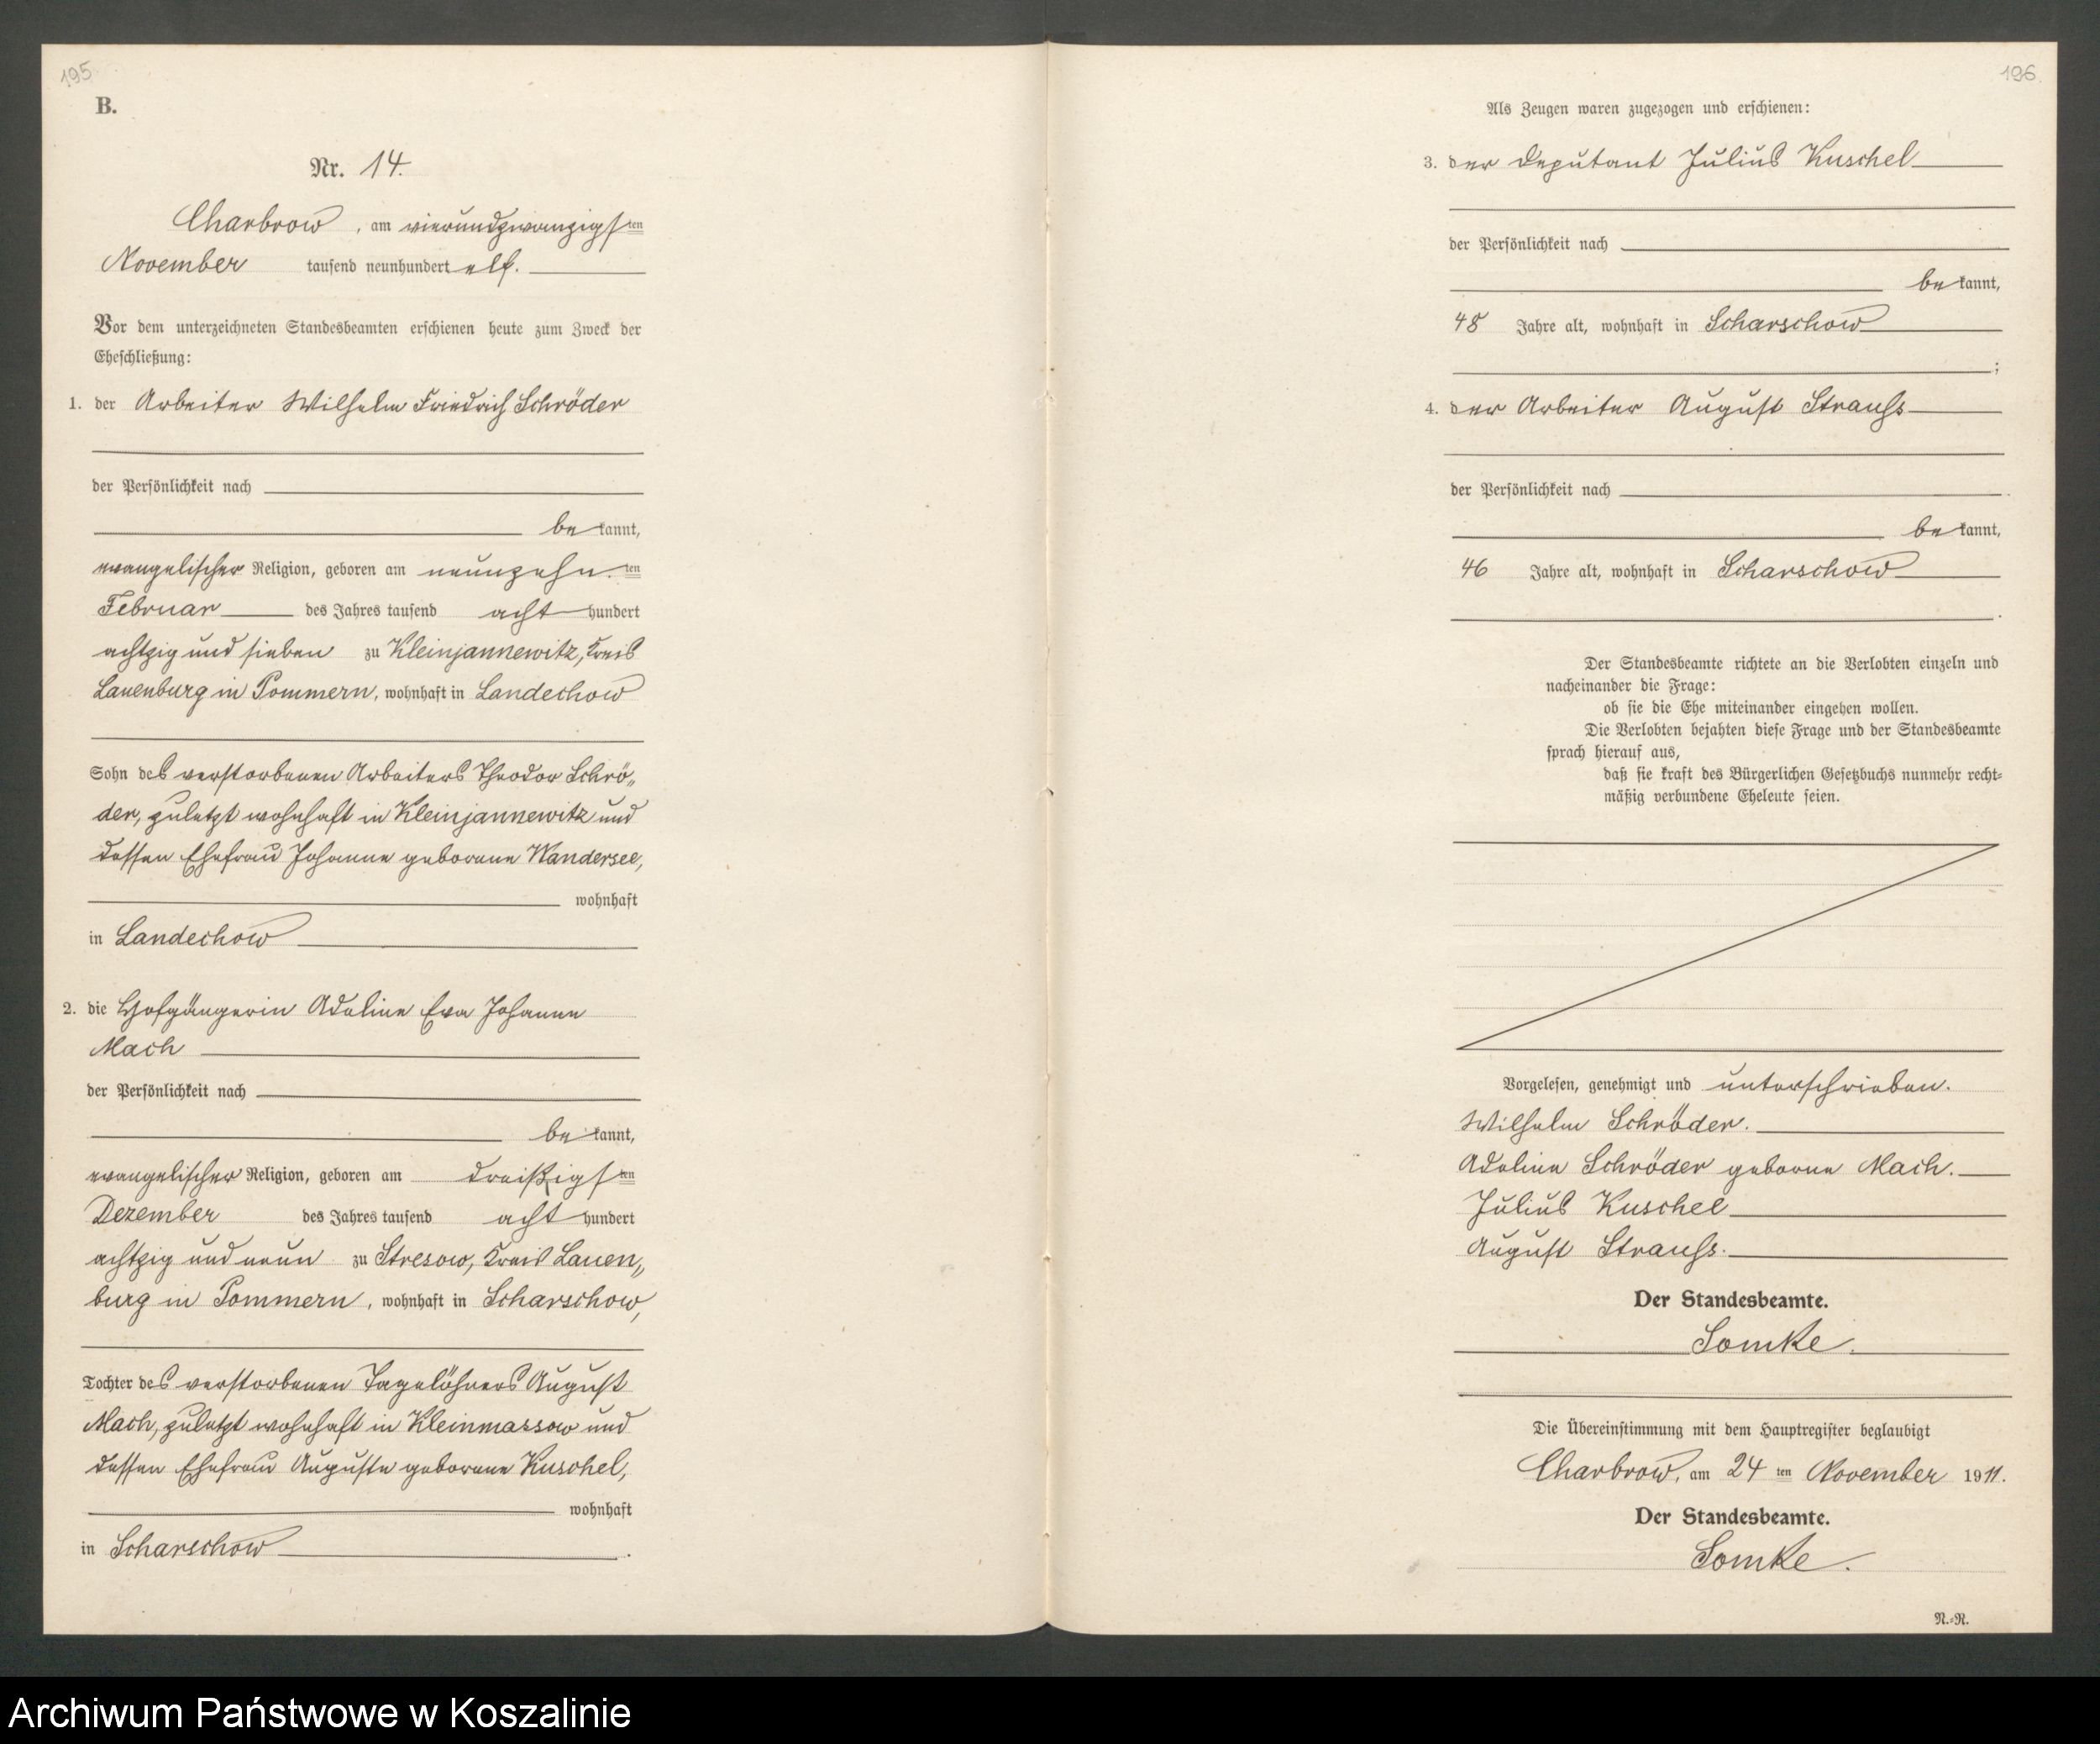 195.
B.
Nr. 14.
Charbrow, am vierundzwanzigsten
November tausend neunhundert elf.
Vor dem unterzeichneten Standesbeamten erschienen heute zum Zweck der
Eheschließung:
1. der Arbeiter Wilhelm Friedrich Schröder
der Persönlichkeit nach
bekannt,
evangelischer Religion, geboren am neunzehn.ten
Februar des Jahres tausend acht hundert
achtzig und sieben zu Kleinjannewitz, Kreis
Lauenburg in Pommern, wohnhaft in Landechow
Sohn des verstorbenen Arbeiters Theodor Schrö„
der, zuletzt wohnhaft in Kleinjannewitz und
dessen Ehefrau Johanne geborene Wandersee,
wohnhaft
in Landechow
2. die Hofgängerin Adeline Eva Johanne
Mach
der Persönlichkeit nach
bekannt,
evangelischer Religion, geboren am dreißigsten
Dezember des Jahres tausend acht hundert
achtzig und neun zu Stresow, Kreis Lauen„
burg in Pommern, wohnhaft in Scharschow,
Tochter des verstorbenen Tagelöhners August
Mach, zuletzt wohnhaft in Kleinmassow und
dessen Ehefrau Auguste geborene Kuschel,
wohnhaft
in Scharschow.
196.
Als Zeugen waren zugezogen und erschienen:
3. der Deputant Julius Kuschel
der Persönlichkeit nach
bekannt,
48 Jahre alt, wohnhaft in Scharschow
;
4. der Arbeiter August Strauss
der Persönlichkeit nach
bekannt,
46 Jahre alt, wohnhaft in Scharschow
.
Der Standesbeamte richtete an die Verlobten einzeln und
nacheinander die Frage:
ob sie die Ehe miteinander eingehen wollen.
Die Verlobten bejahten diese Frage und der Standesbeamte
sprach hierauf aus,
daß sie kraft des Bürgerlichen Gesetzbuchs nunmehr recht-
mäßig verbundene Eheleute seien.
Vorgelesen, genehmigt und unterschrieben.
Wilhelm Schröder.
Adeline Schröder geborne Mach.
Julius Kuschel
August Strauss.
Der Standesbeamte.
Somke.
Die Übereinstimmung mit dem Hauptregister beglaubigt
Charbrow, am 24 ten November 1911.
Der Standesbeamte.
Somke.
N.-R.
Archiwum Państwowe w Koszalinie